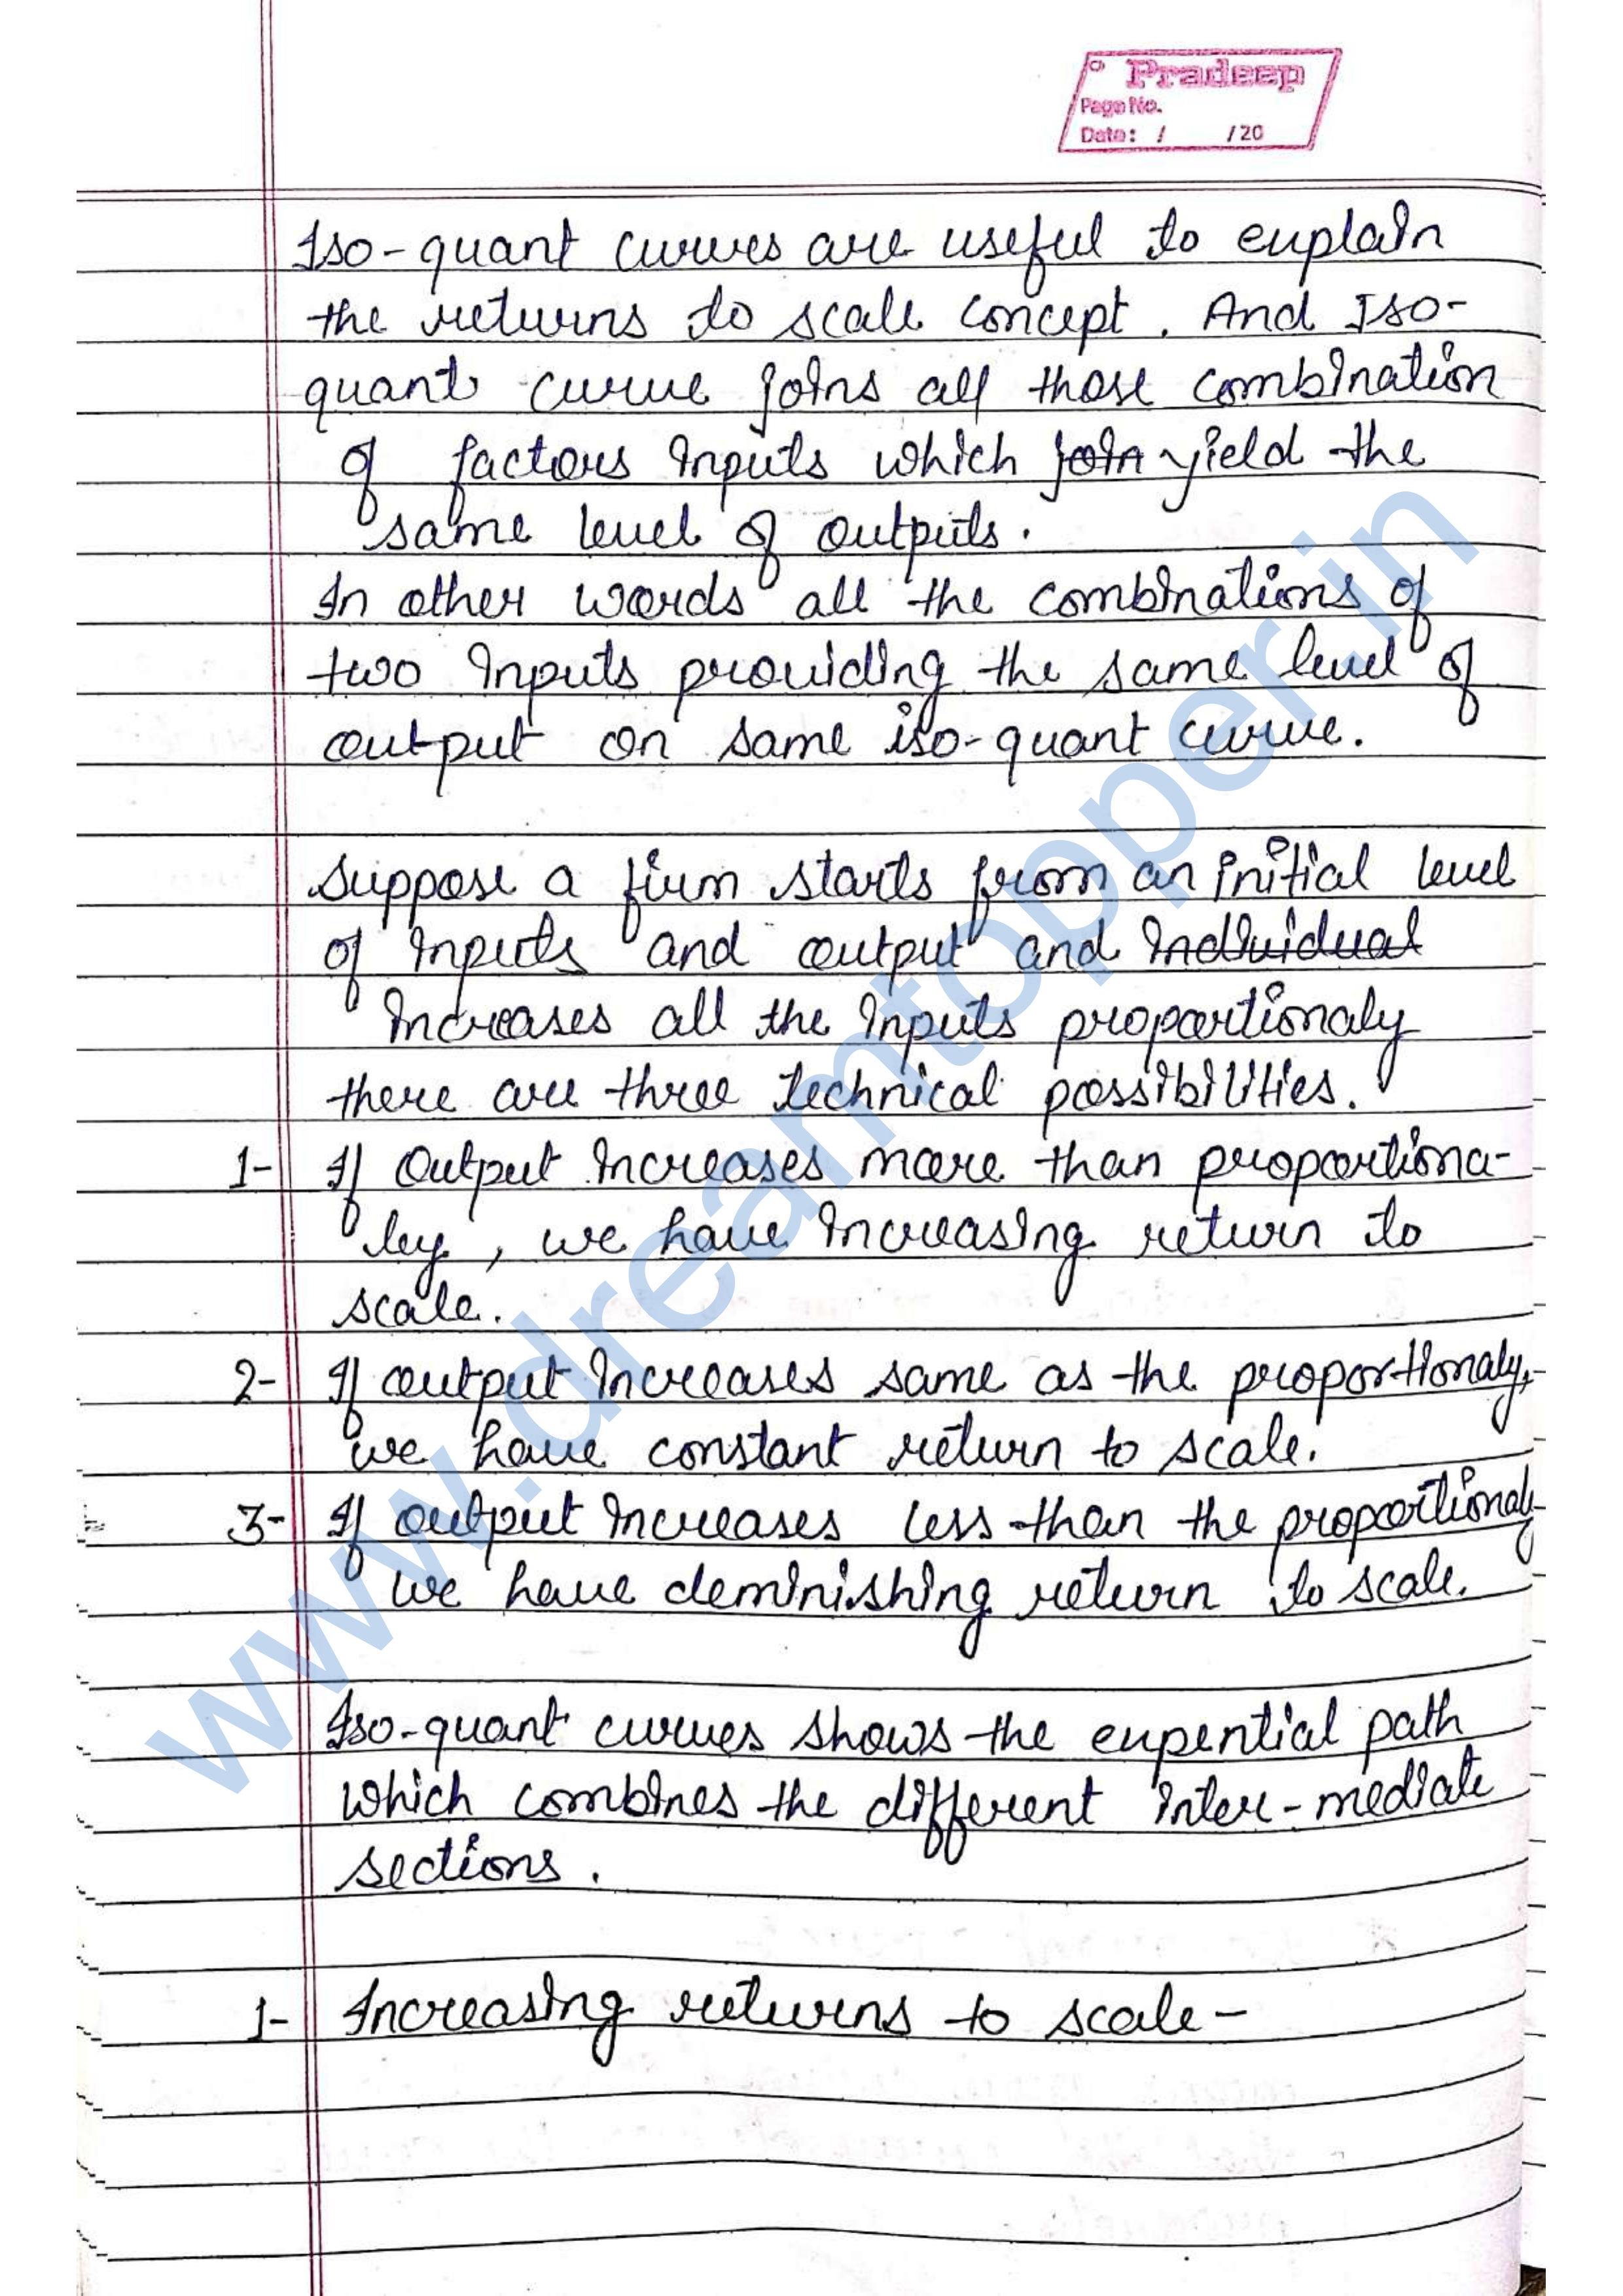 Pradeep
Page No.
Date: / /20
Iso-quant curves are useful to explain
the returns to scale concept. And Iso-
quant curve joins all those combination
of factors inputs which join yield the
same level of outputs.
In other words all the combinations of
two inputs providing the same level of
output on same iso-quant curve.
Suppose a firm starts from an initial level
of inputs and output and individual
increases all the inputs proportionaly
there are three technical possibilities.
1- If output increases more than proportiona-
ley, we have increasing return to
scale.
2- If output increases same as the proportionaly,
we have constant return to scale.
3- If output increases less than the proportionaly
we have deminishing return to scale.
Iso-quant curves shows the expential path
which combines the different inter-mediate
sections.
1- Increasing returns to scale-
www.dreamtopper.in